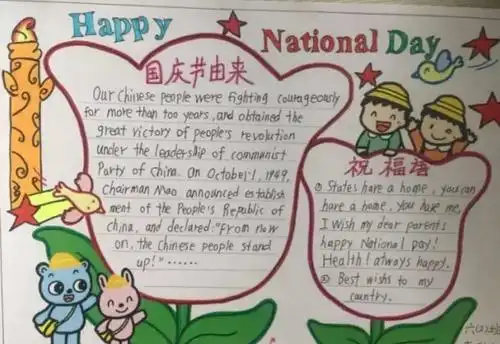 Happy National Day
国庆节由来
Our Chinese people were fighting courageously
for more than 100 years, and obtained the
great victory of people's revolution
under the leadership of communist
Party of China. On October 1, 1949.
Chairman Mao announced establish
ment of the People's Republic of
China, and declared: "From now
on, the Chinese people stand
up!" ......
祝福语
① States have a home, you can
have a home, you have me,
I wish my dear parents
happy National pay!
Health! always happy.
② Best wishs to my
cuntry.
六(2)班